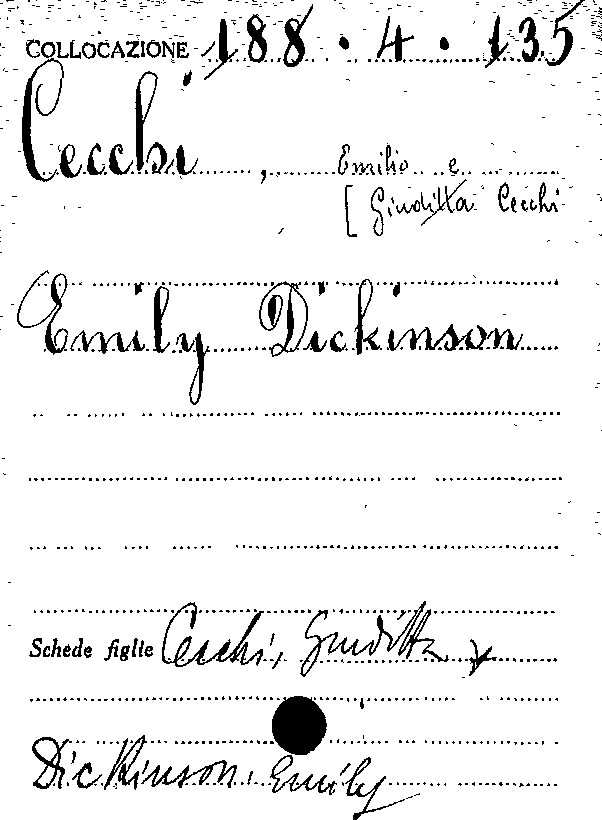 COLLOCAZIONE 188 • 4 • 135
Cecchi, Emilio e
[Giuditta Cecchi
Emily Dickinson
Schede figlie Cecchi, Giuditta
Dickinson, Emily